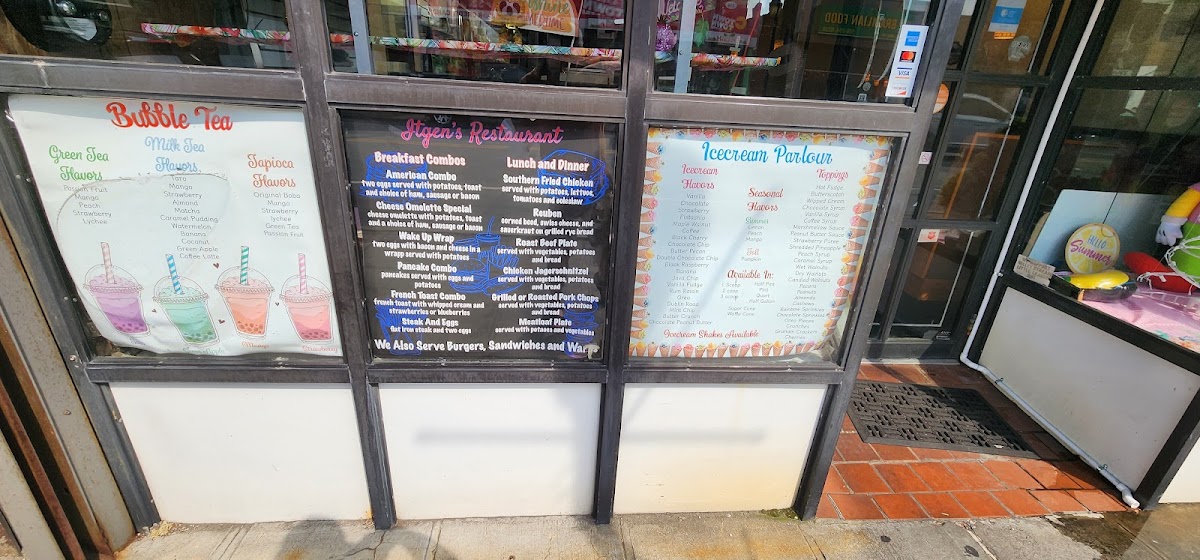 Bubble Tea
Green Tea
Flavors
Passion Fruit
Mango
Peach
Strawberry
Lychee
Milk Tea
Flavors
Taro
Mango
Strawberry
Almond
Matcha
Caramel Pudding
Watermelon
Banana
Coconut
Green Apple
Coffee Latte
Tapioca
Flavors
Original Boba
Mango
Strawberry
Lychee
Green Tea
Passion Fruit
Itgen's Restaurant
Breakfast Combos
American Combo
two eggs served with potatoes, toast
and choice of ham, sausage or bacon
Cheese Omelette Special
cheese omelette with potatoes, toast
and a choice of ham, sausage or bacon
Wake Up Wrap
two eggs with bacon and cheese in a
wrapp served with potatoes
Pancake Combo
pancakes served with eggs and
potatoes
French Toast Combo
french toast with whipped cream and
strawberries or blueberries
Steak And Eggs
flat iron steak and two eggs
Lunch and Dinner
Southern Fried Chicken
served with potatoes, lettuce,
tomatoes and coleslaw
Reuben
corned beed, swiss cheese, and
sauerkraut on grilled rye bread
Roast Beef Plate
served with vegetables, potatoes
and bread
Chicken Jagerschnitzel
served with vegetables, potatoes
and bread
Grilled or Roasted Pork Chops
served with vegetables, potatoes
and bread
Meatloaf Plate
served with potaoes and vegetables
We Also Serve Burgers, Sandwiches and Wraps
Icecream Parlour
Icecream
Flavors
Vanilla
Chocolate
Strawberry
Pistachio
Maple Walnut
Coffee
Black Cherry
Chocolate Chip
Butter Pecan
Double Chocolate Chip
Black Raspberry
Banana
Java Chip
Vanilla Fudge
Rum Raisin
Oreo
Mint Chip
Butter Crunch
Chocolate Peanut Butter
Seasonal
Flavors
Summer
Lemon
Peach
Mango
Fall
Pumpkin
Available In:
Half Pint
Pint
Quart
Half Gallon
Sugar Cone
Waffle Cone
Toppings
Hot Fudge
Butterscotch
Whipped Cream
Chocolate Syrup
Vanilla Syrup
Marshmallow Sauce
Peanut Butter Sauce
Strawberry Puree
Shredded Pineapple
Peach Syrup
Caramel Syrup
Wet Walnuts
Dry Walnuts
Candied Walnuts
Pecans
Peanuts
Almonds
Cashews
Rainbow Sprinkles
Chocolate Sprinkles
Oreo Pieces
Crunchies
Graham Crackers
Cherries
Icecream Shakes Available
BRAZILIAN FOOD
VISA
Hello
Summer